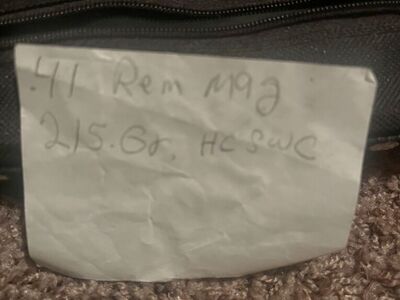 .41 Rem Mag
215.Gr. HC SWC